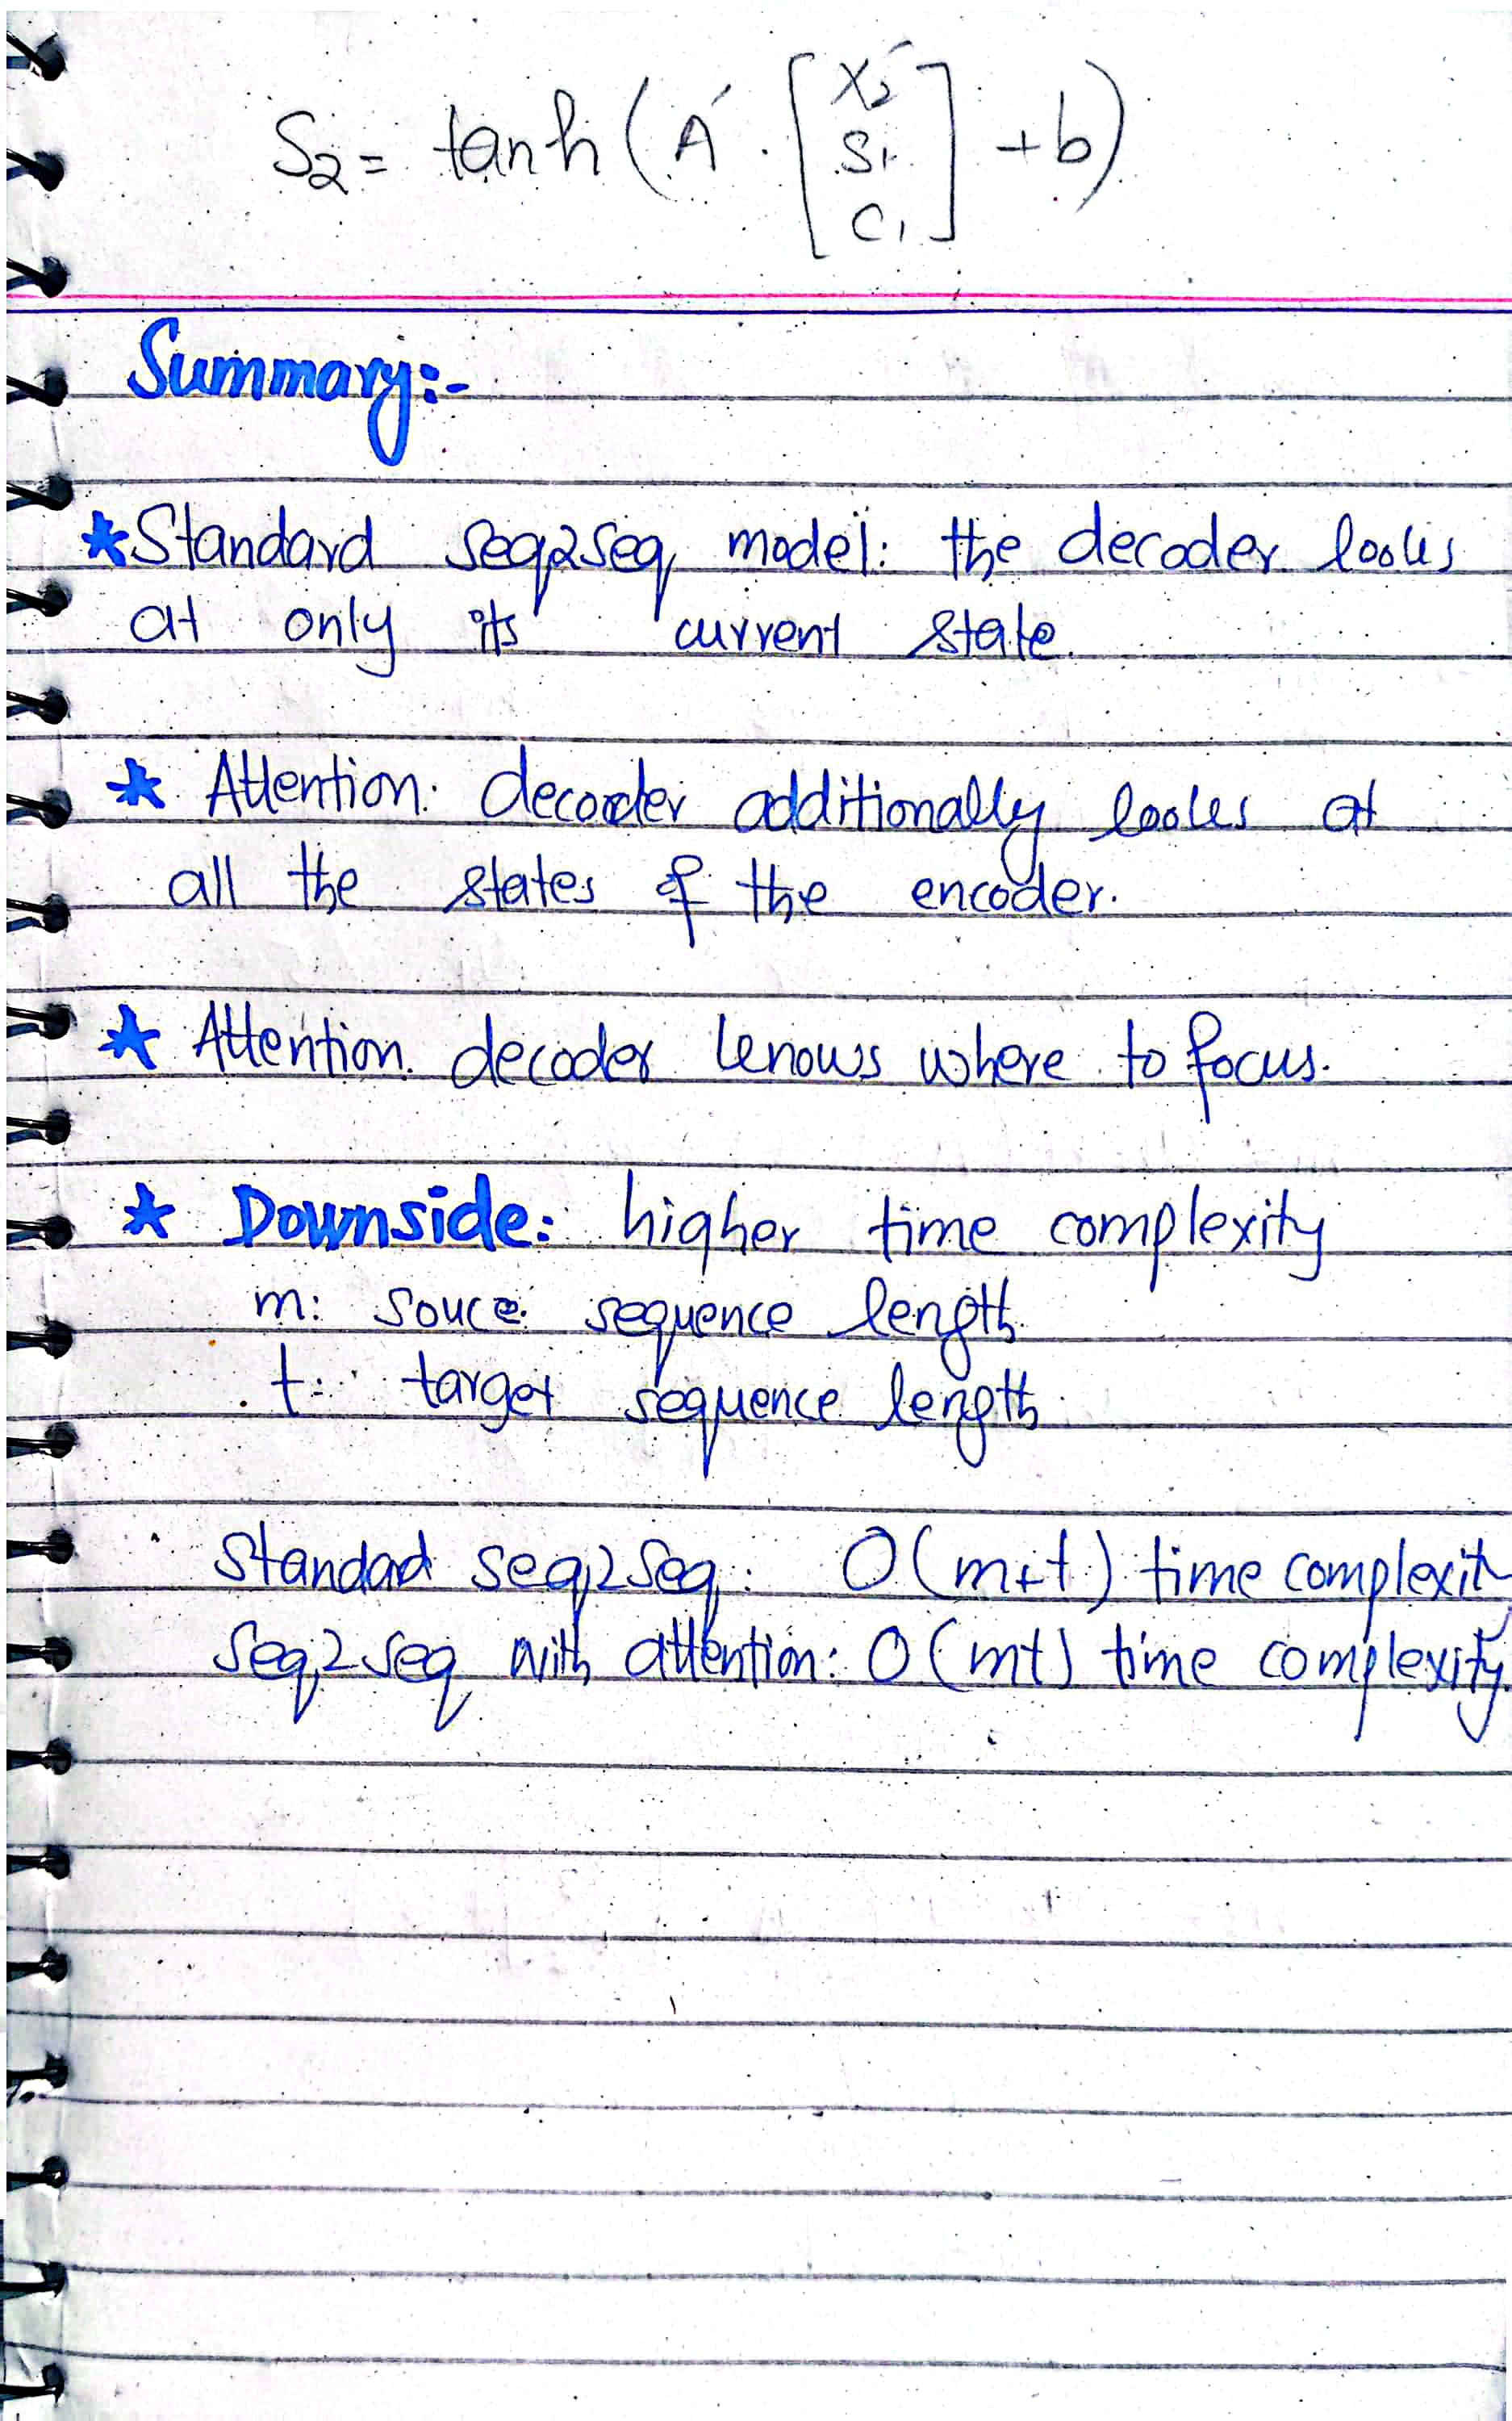 S₂ = tanh (A' · [x₂' s₁ c₁] + b)
Summary:-
*Standard seq2seq model: the decoder looks
at only its current state.
* Attention: decoder additionally looks at
all the states of the encoder.
* Attention: decoder knows where to focus.
* Downside: higher time complexity
m: souce sequence length
t: target sequence length
Standad seq2seq: O(m+t) time complexity
Seq2seq with attention: O(mt) time complexity.